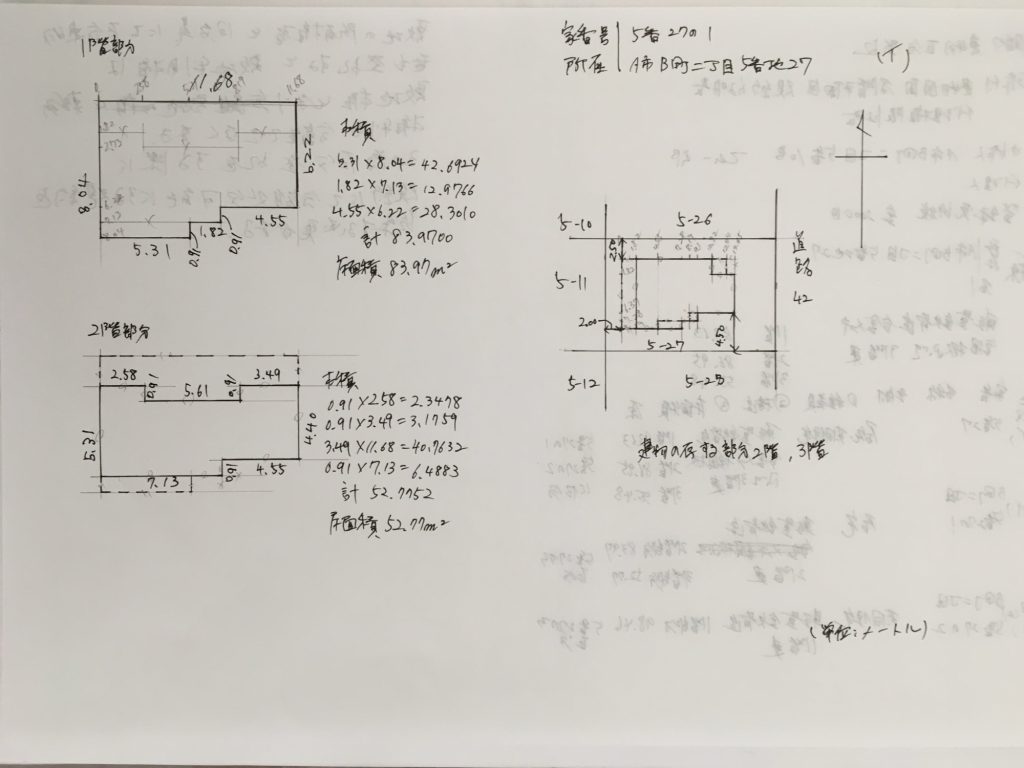 1階部分
11.68
8.04
6.22
5.31
0.91
1.82
0.91
4.55
求積
5.31×8.04=42.6924
1.82×7.13=12.9766
4.55×6.22=28.3010
計 83.9700
床面積 83.97m²
2階部分
2.58
0.91
5.61
0.91
3.49
5.31
4.40
7.13
0.91
4.55
求積
0.91×2.58=2.3478
0.91×3.49=3.1759
3.49×11.68=40.7632
0.91×7.13=6.4883
計 52.7752
床面積 52.77m²
家番号 5番27の1
所在 A市B町二丁目5番地27
(イ)
5-10
5-26
道路
42
5-11
2.00
5-27
4.50
5-12
5-25
建物の存する部分2階,3階
(単位:メートル)